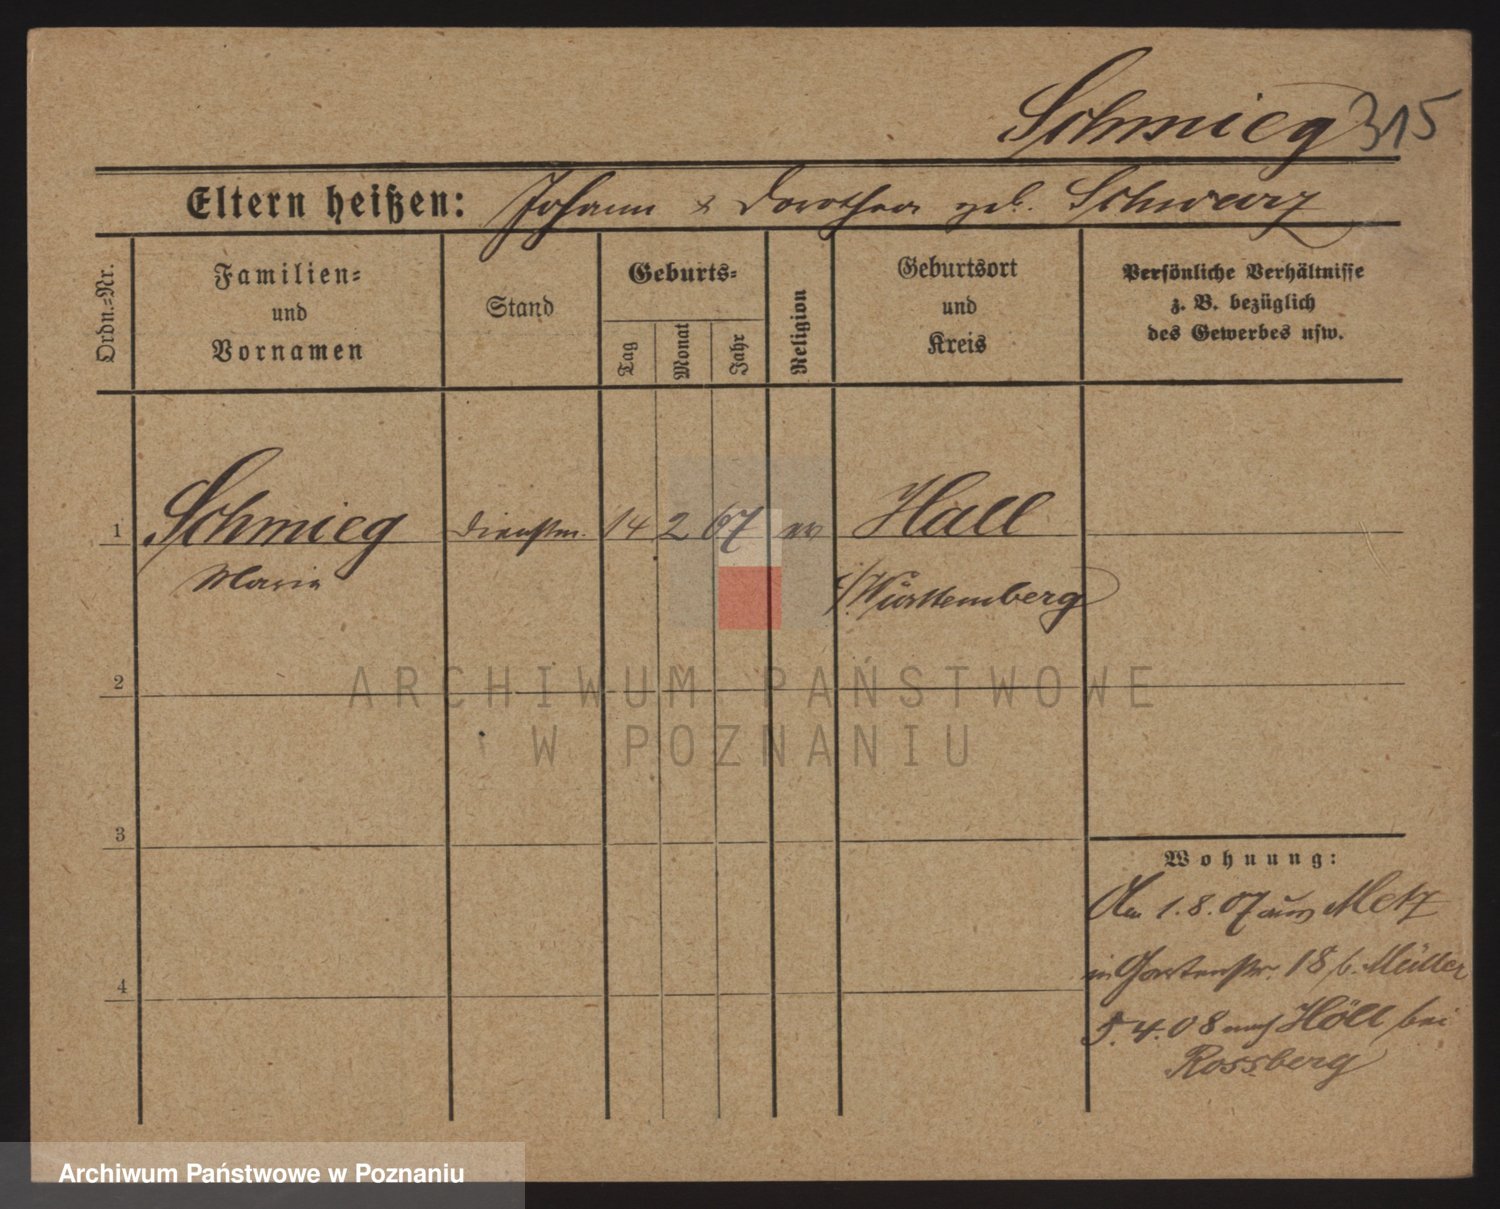 Schmieg 315
Eltern heißen: Johann & Dorothea geb. Schwarz
Ordn.-Nr.
Familien-
und
Vornamen
Stand
Geburts-
Tag
Monat
Jahr
Religion
Geburtsort
und
Kreis
Persönliche Verhältnisse
z. B. bezüglich
des Gewerbes usw.
1 Schmieg Dienstm. 14 2 67 ev Hall
Marie
i/Württemberg
2
ARCHIWUM PAŃSTWOWE
W POZNANIU
3
Wohnung:
Am 1.8.07 aus Metz
in Gartenstr. 18 b. Müller
4
5.4.08 nach Höll bei
Rossberg
Archiwum Państwowe w Poznaniu